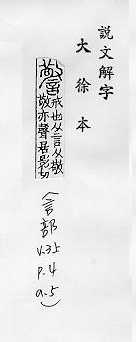 説文解字
大徐本
警 戒也从言从敬
敬亦聲居影切
(言部
v.35
p.4
a.5)